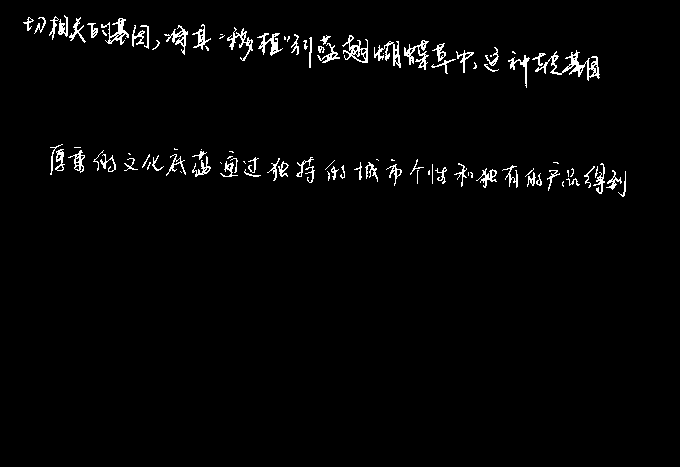 切相关的基因，将其“移植”到蓝翅蝴蝶草中，这种转基因
厚重的文化底蕴通过独特的城市个性和独有的产品得到